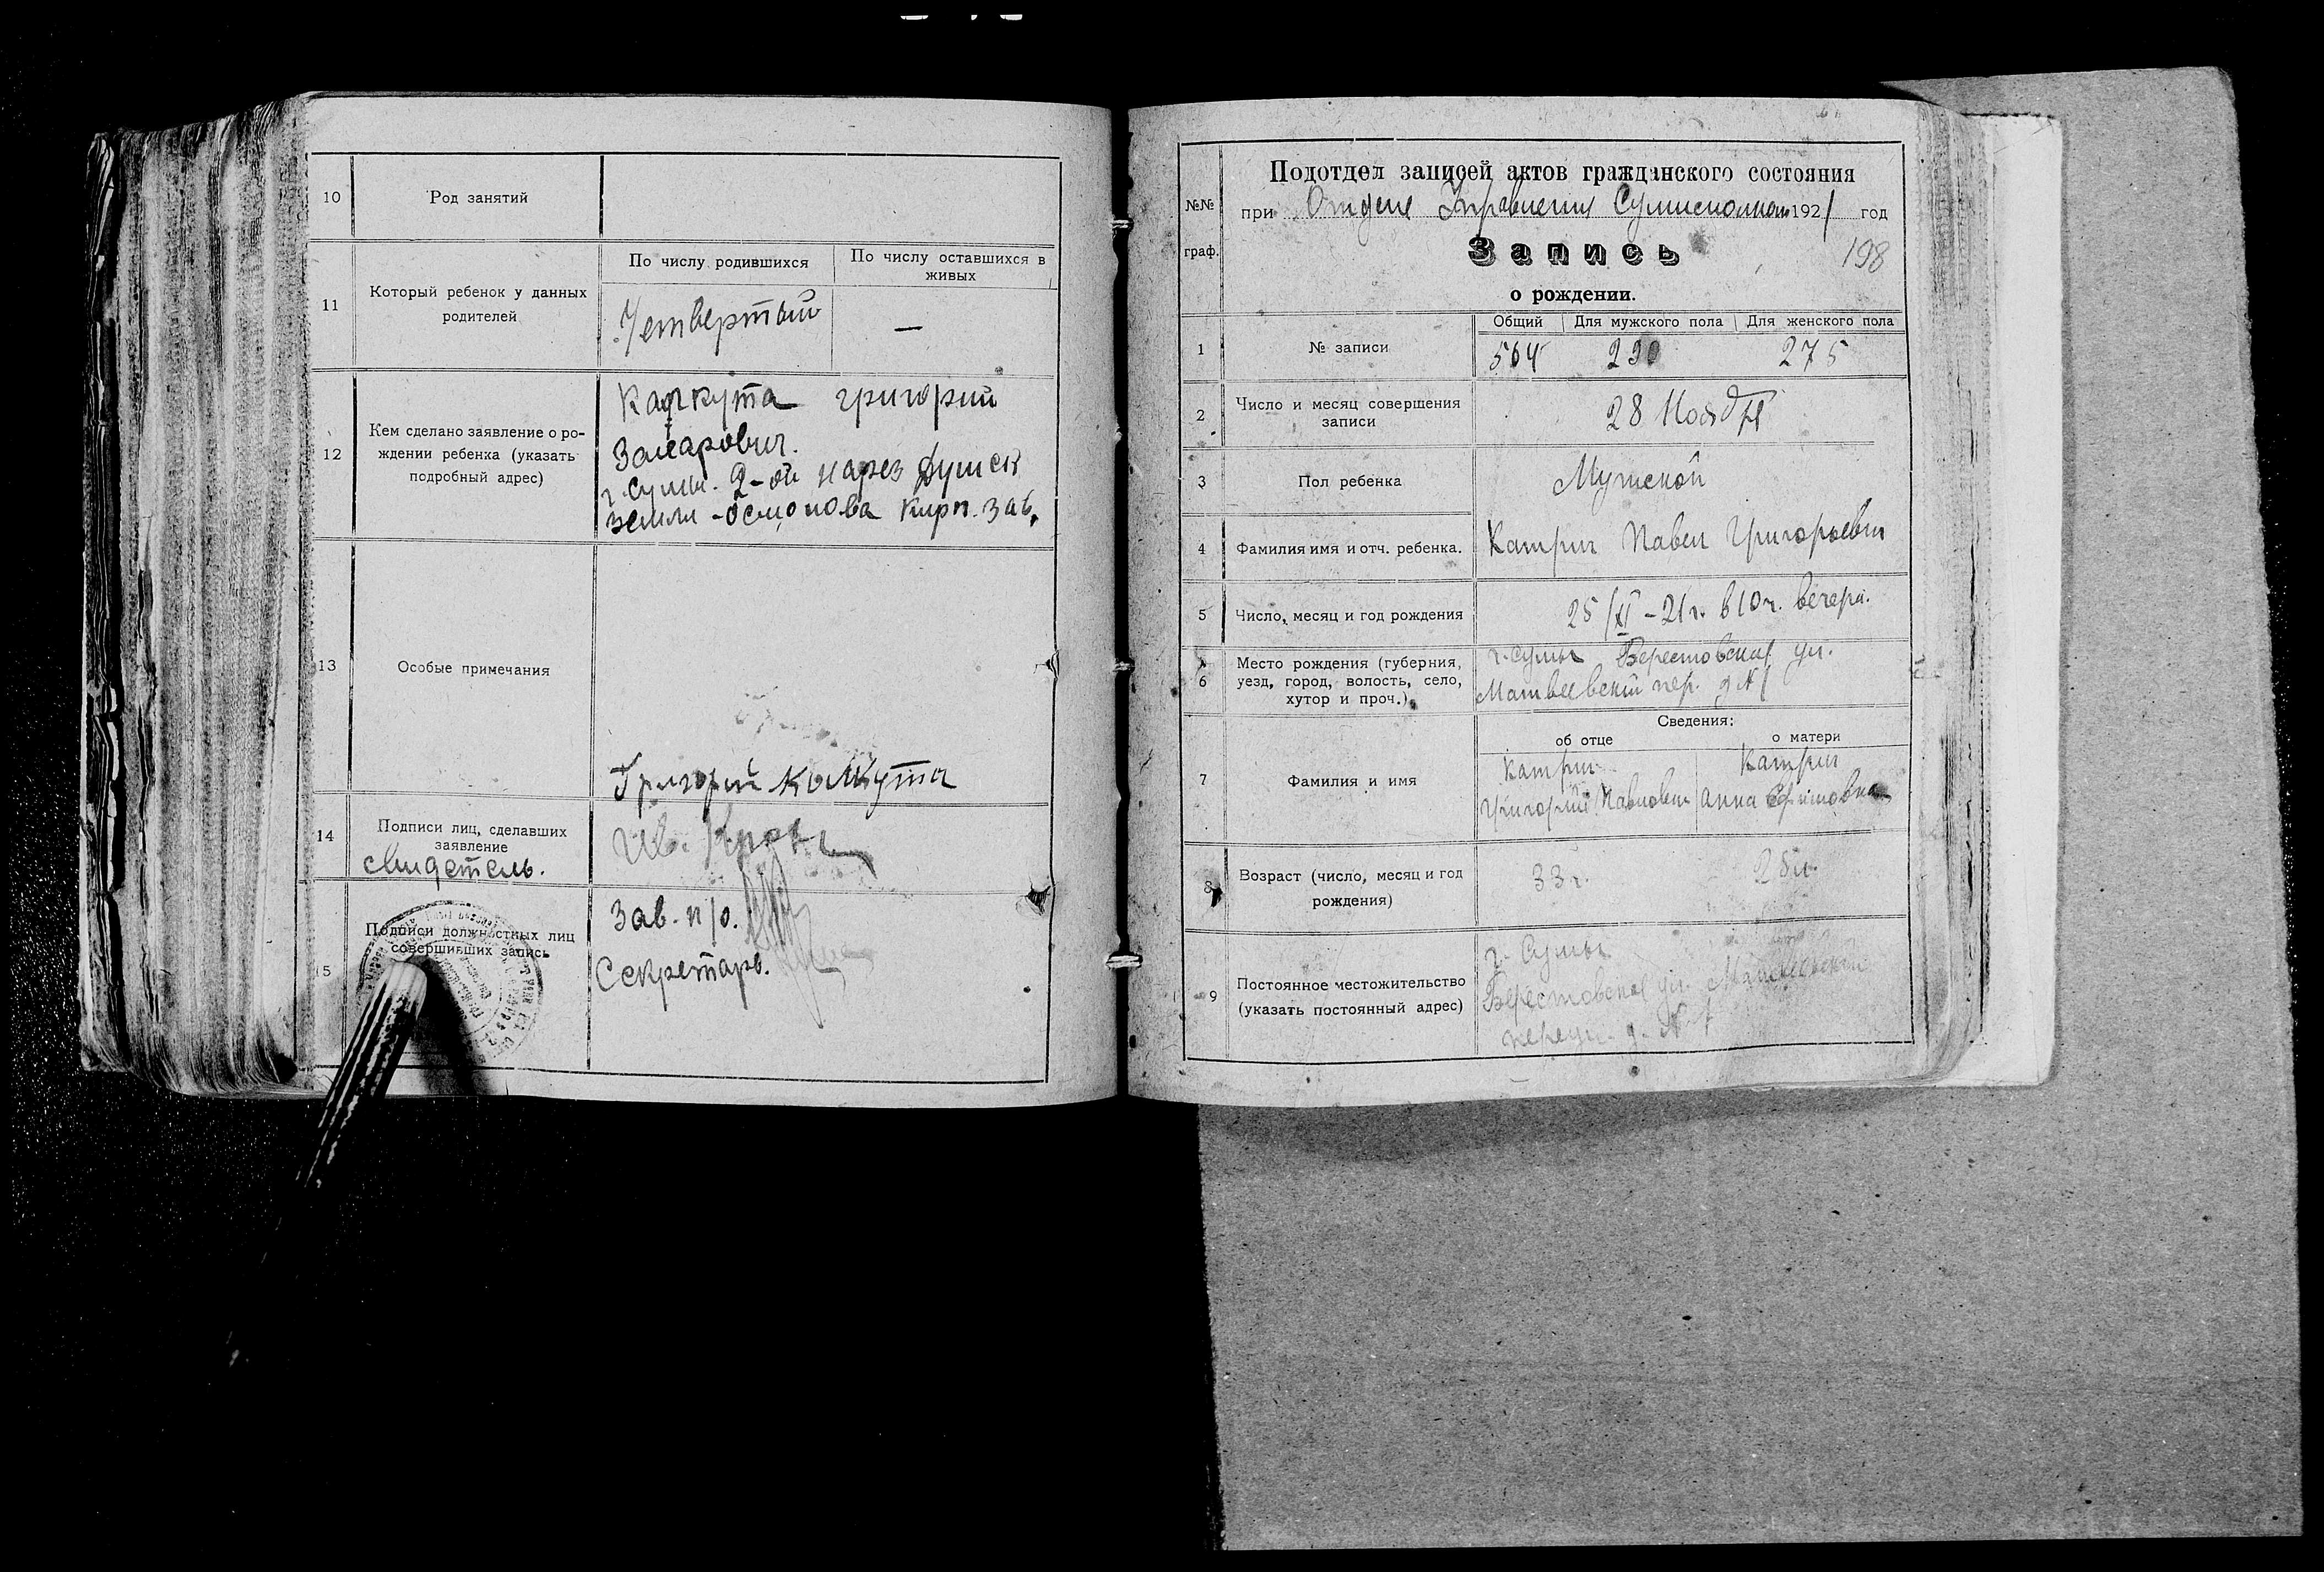 10
Род занятий
11
Который ребенок у данных
родителей
По числу родившихся
По числу оставшихся в
живых
Четвертый
—
12
Кем сделано заявление о ро-
ждении ребенка (указать
подробный адрес)
Григорий
Захарович.
г. Сумы. 2-ой нарез
земли - кирп. зав.
13
Особые примечания
Григорий
14
Подписи лиц, сделавших
заявление
свидетель.
15
Подписи должностных лиц
совершивших запись
Зав. п/о.
Секретарь.
№№
граф.
Подотдел записей актов гражданского состояния
при Отделе Управления Сумисполкома 1921 год
Запись
198
о рождении.
1
№ записи
Общий
Для мужского пола
Для женского пола
564
290
275
2
Число и месяц совершения
записи
28 Ноября
3
Пол ребенка
Мужской
4
Фамилия имя и отч. ребенка.
Катрич Павел Григорьевич
5
Число, месяц и год рождения
25/XI - 21 г. в 10 ч. вечера.
6
Место рождения (губерния,
уезд, город, волость, село,
хутор и проч.)
г. Сумы Берестовская ул.
Матвеевский пер. д №1
7
Фамилия и имя
Сведения:
об отце
о матери
Катрич
Григорий Павлович
Катрич
Анна
8
Возраст (число, месяц и год
рождения)
33 г.
28 л.
9
Постоянное местожительство
(указать постоянный адрес)
г. Сумы
Берестовская ул. Матвеевский
переул. д. № 1